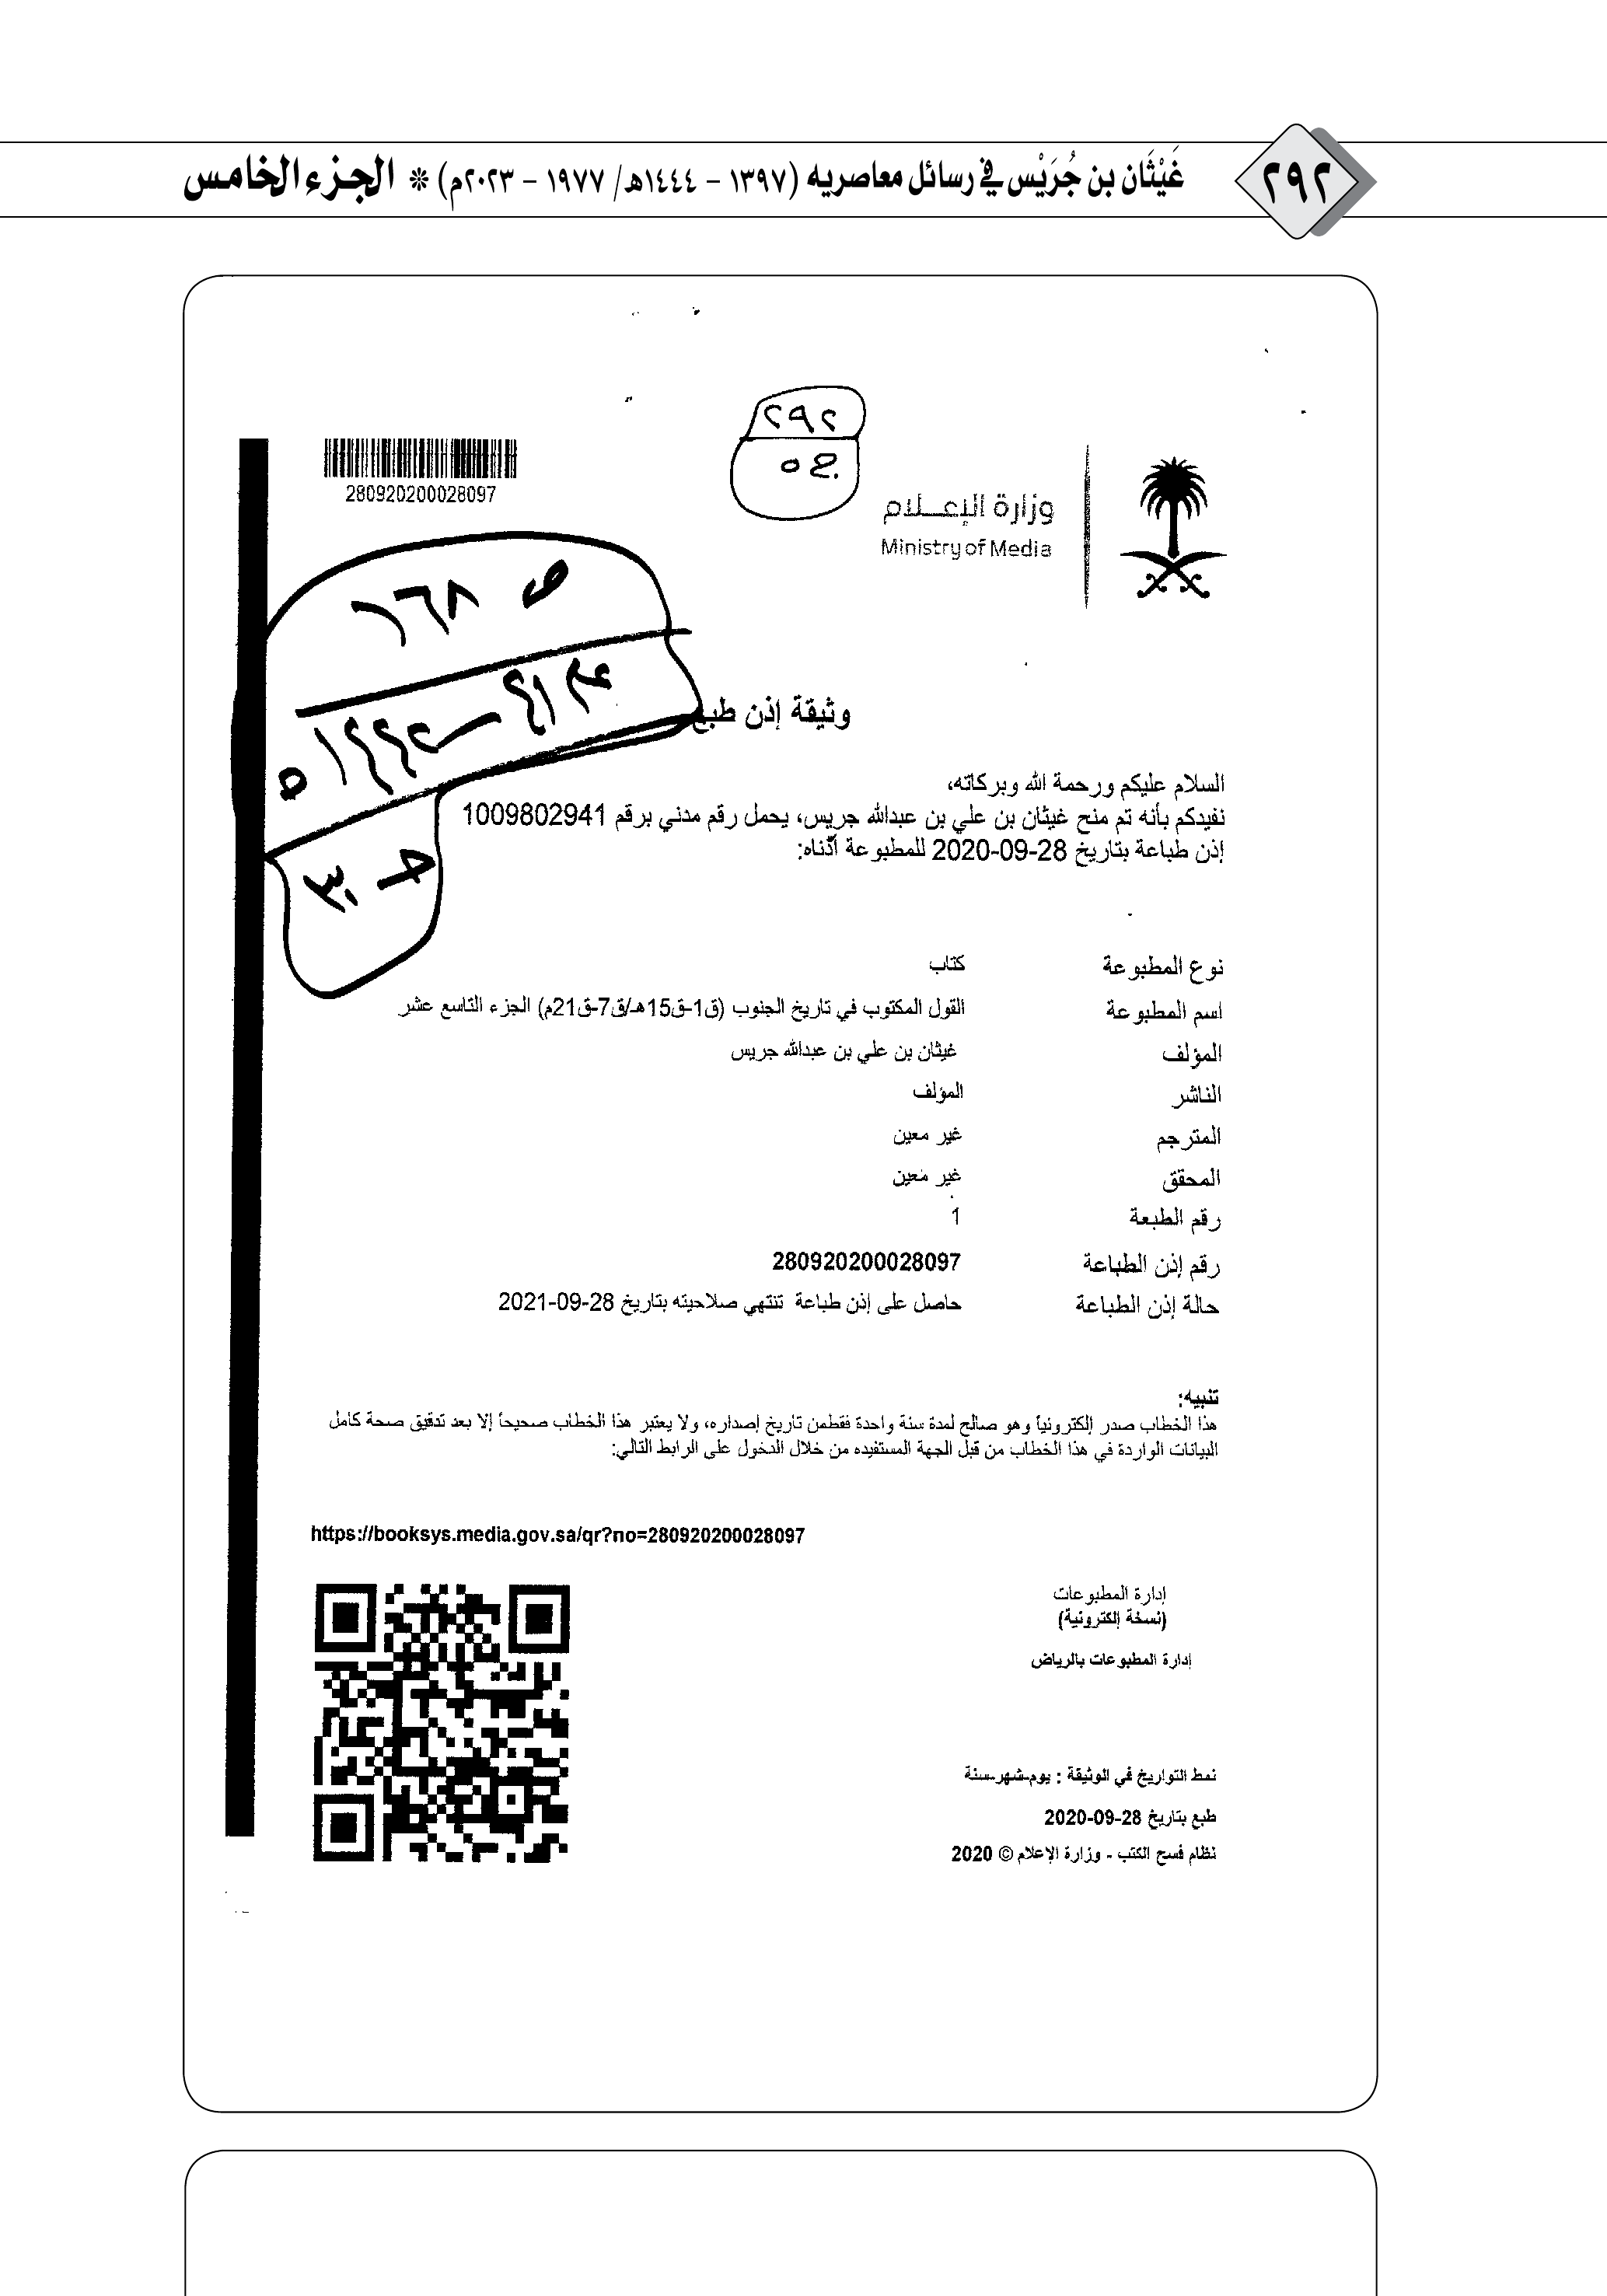 ٢٩٢
غَيْثَان بن جُرَيْس في رسائل معاصريه (١٣٩٧ – ١٤٤٤هـ/ ١٩٧٧ – ٢٠٢٣م) * الجزء الخامس
٢٩٢
280920200028097
وزارة الإعـلام
Ministry of Media
ص ١٦٨
وثيقة إذن طبع
السلام عليكم ورحمة الله وبركاته،
نفيدكم بأنه تم منح غيثان بن علي بن عبدالله جريس، يحمل رقم مدني برقم 1009802941
إذن طباعة بتاريخ 28-09-2020 للمطبوعة أدناه:
نوع المطبوعة كتاب
اسم المطبوعة القول المكتوب في تاريخ الجنوب (ق1-ق15هـ/ق7-ق21م) الجزء التاسع عشر
المؤلف غيثان بن علي بن عبدالله جريس
الناشر المؤلف
المترجم غير معين
المحقق غير معين
رقم الطبعة 1
رقم إذن الطباعة 280920200028097
حالة إذن الطباعة حاصل على إذن طباعة تنتهي صلاحيته بتاريخ 28-09-2021
تنبيه:
هذا الخطاب صدر إلكترونياً وهو صالح لمدة سنة واحدة فقطمن تاريخ إصداره، ولا يعتبر هذا الخطاب صحيحاً إلا بعد تدقيق صحة كامل
البيانات الواردة في هذا الخطاب من قبل الجهة المستفيده من خلال الدخول على الرابط التالي:
https://booksys.media.gov.sa/qr?no=280920200028097
إدارة المطبوعات
(نسخة إلكترونية)
إدارة المطبوعات بالرياض
نمط التواريخ في الوثيقة : يوم-شهر-سنة
طبع بتاريخ 28-09-2020
نظام فسح الكتب - وزارة الإعلام © 2020